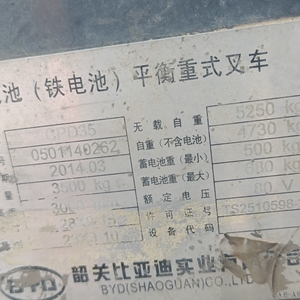 池（铁电池）平衡重式叉车
CPD35 无载自重 5250 kg
0501140262 自重（不含电池） 4730 kg
2014.03 蓄电池重（最小） 500 kg
3500 kg 蓄电池重（最大）
额定电压 80 V
许可证号 TS2510598
设备代码
BYD 韶关比亚迪实业有限公司
BYD(SHAOGUAN)CO.,LTD